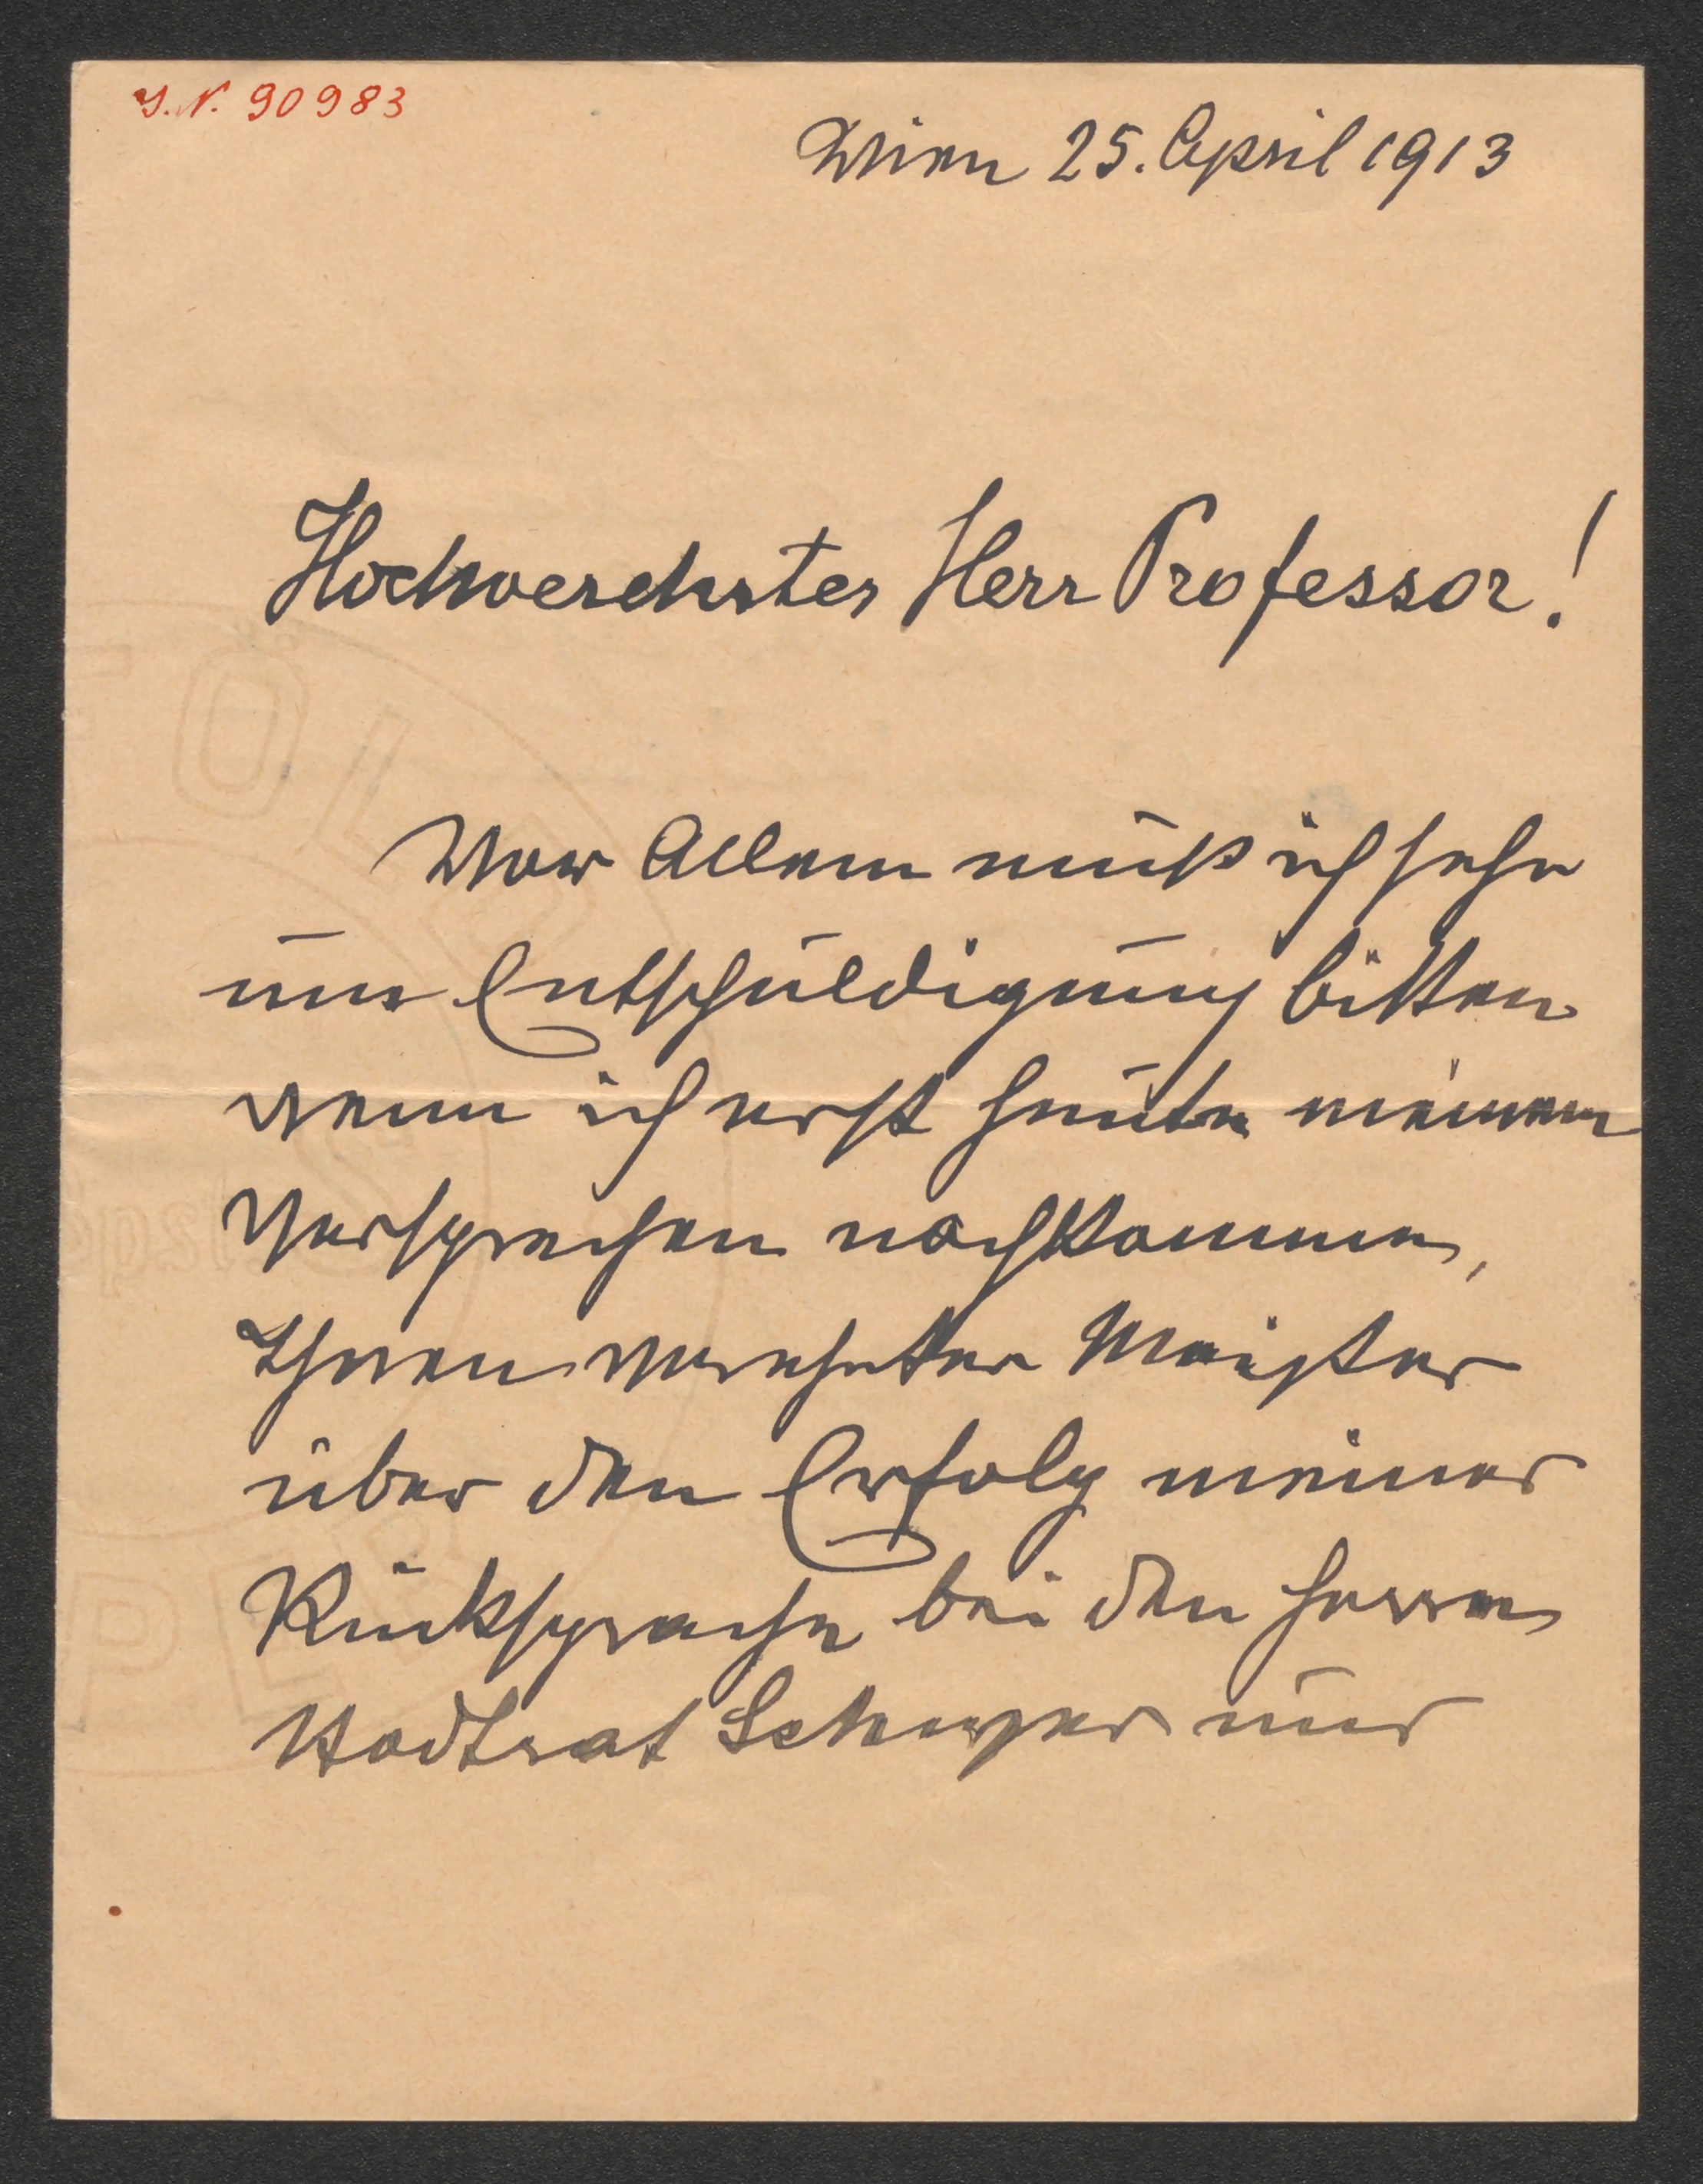 J.N. 90983
Wien 25. April 1913
Hochverehrter Herr Professor!
Vor Allem muß ich sehr
um Entschuldigung bitten
wenn ich erst heute meinem
Versprechen nachkomme,
Ihnen verehrter Meister
über den Erfolg meiner
Rücksprache bei den Herren
Stadtrat Schwer nur